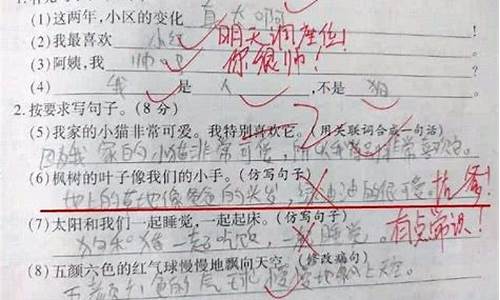 (1)这两年,小区的变化 真大啊
(2)我最喜欢 小红 明天调座位!
(3)阿姨,我 帅 吧 你很帅!
(4) 我 是 人 ,不是 狗
2.按要求写句子。(8分)
(5)我家的小猫非常可爱。我特别喜欢它。(用关联词合成一句话)
因为我家的小猫非常可爱,所以我 非常喜欢它。
(6)枫树的叶子像我们的小手。(仿写句子)
地上的草地像爸爸的头发,绿油油的很可爱。
(7)太阳和我们一起睡觉,一起起床。(仿写句子)
狗和猪一起吃饭,一起睡觉。 有点常识!
(8)五颜六色的红气球慢慢地飘向天空。(修改病句)
五颜六色的气球慢慢地飘上天空。